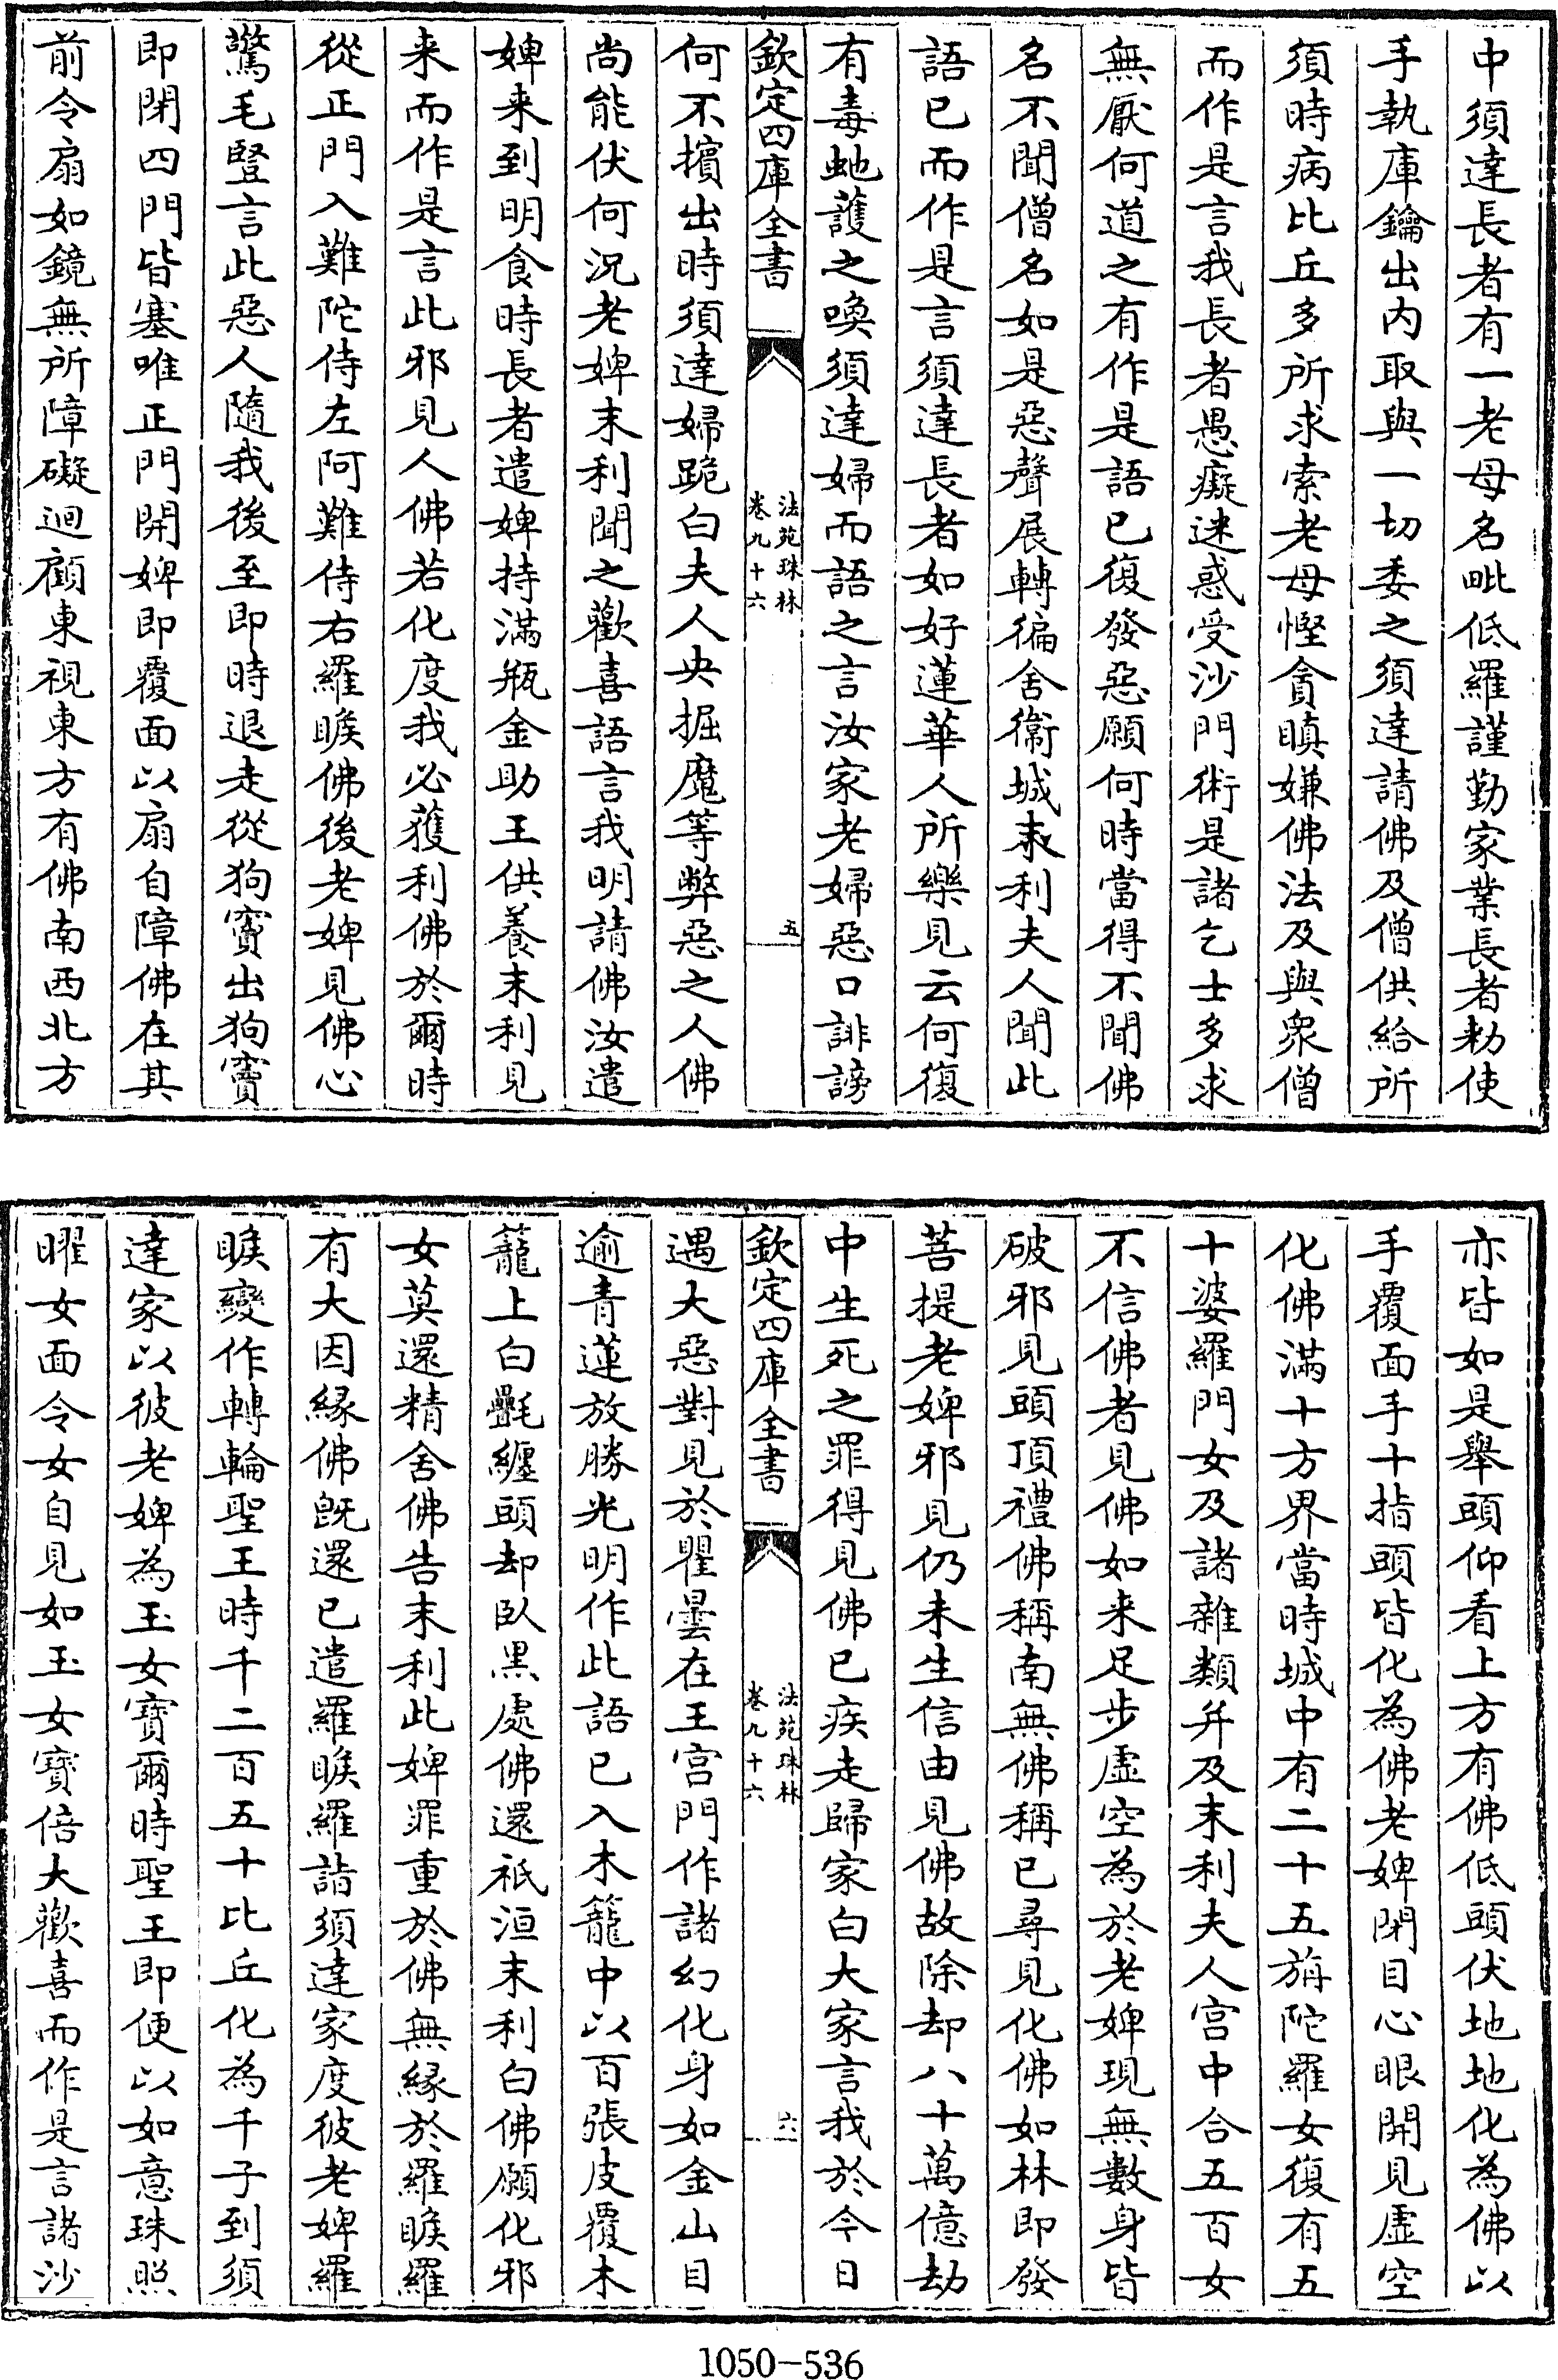 中須達長者有一老母名毗低羅謹勤家業長者勑使
手執庫鑰出內取與一切委之須達請佛及僧供給所
須時病比丘多所求索老母慳貪瞋嫌佛法及與衆僧
而作是言我長者愚癡迷惑受沙門術是諸乞士多求
無厭何道之有作是語已復發惡願何時當得不聞佛
名不聞僧名如是惡聲展轉徧舍衞城末利夫人聞此
語已而作是言須達長者如好蓮華人所樂見云何復
有毒虵護之喚須達婦而語之言汝家老婦惡口誹謗
欽定四庫全書
法苑珠林
卷九十六
五
何不擯出時須達婦跪白夫人央掘魔等弊惡之人佛
尚能伏何況老婢末利聞之歡喜語言我明請佛汝遣
婢来到明食時長者遣婢持滿瓶金助王供養末利見
来而作是言此邪見人佛若化度我必獲利佛於爾時
從正門入難陀侍左阿難侍右羅睺佛後老婢見佛心
驚毛豎言此惡人隨我後至即時退走從狗竇出狗竇
即閉四門皆塞唯正門開婢即覆面以扇自障佛在其
前令扇如鏡無所障礙迴顧東視東方有佛南西北方
亦皆如是舉頭仰看上方有佛低頭伏地地化為佛以
手覆面手十指頭皆化為佛老婢閉目心眼開見虛空
化佛滿十方界當時城中有二十五旃陀羅女復有五
十婆羅門女及諸雜類并及末利夫人宫中合五百女
不信佛者見佛如来足步虛空為於老婢現無數身皆
破邪見頭頂禮佛稱南無佛稱已尋見化佛如林即發
菩提老婢邪見仍未生信由見佛故除却八十萬億劫
中生死之罪得見佛已疾走歸家白大家言我於今日
欽定四庫全書
法苑珠林
卷九十六
六
遇大惡對見於瞿曇在王宫門作諸幻化身如金山目
逾青蓮放勝光明作此語已入木籠中以百張皮覆木
籠上白㲲纏頭却臥黑處佛還祇洹末利白佛願化邪
女莫還精舍佛告末利此婢罪重於佛無緣於羅睺羅
有大因緣佛旣還已遣羅睺羅詣須達家度彼老婢羅
睺變作轉輪聖王時千二百五十比丘化為千子到須
達家以彼老婢為玉女寶爾時聖王即便以如意珠照
曜女面令女自見如玉女寶倍大歡喜而作是言諸沙
1050-536